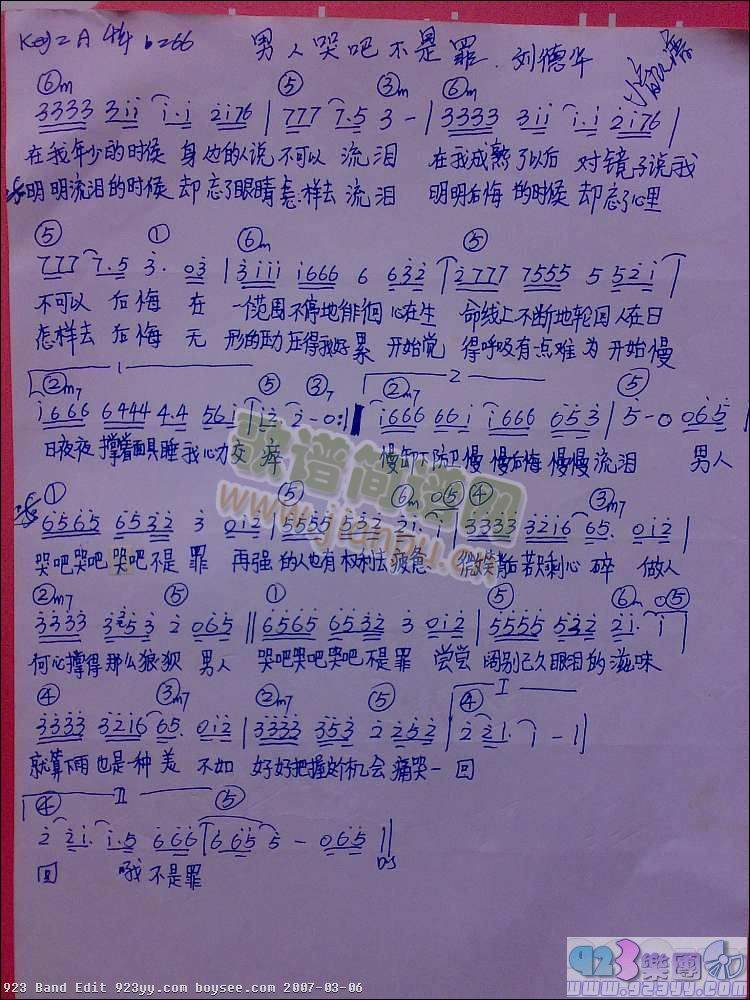 Key=A 4/4 b=66 男人哭吧不是罪. 刘德华
⑥m ⑤ ③m ⑥m
3333 3ii i·i 2i76 | 777 7·5 3 - | 3333 3ii i·i 2i76 |
在我年少的时候 身边的人说 不可以 流泪 在我成熟了以后 对镜子说我
明明流泪的时候 却忘了眼睛怎样去 流泪 明明后悔的时候 却忘了心里
⑤ ① ⑥m ⑤
777 7·5 3· 03 | 3iii i666 6 632 | 2777 7555 5 52i |
不可以 后悔 在 一个范围不停地徘徊 心在生 命线上不断地轮回 人在日
怎样去 后悔 无 形的压力压得我好累 开始觉 得呼吸有点难为 开始慢
1 2
②m7 ⑤ ③7 ②m7 ⑤
i666 6444 4·4 56i | 2· i - 0 :| i666 66i i666 653 | 5 - 0 065 |
日夜夜 撑着面具睡 我心力交 瘁 慢卸下防卫 慢慢后悔 慢慢流泪 男人
① ⑤ ⑥m 0⑤ ④ ③m7
6565 6532 3 0i2 | 5555 532 2i· i | 3333 32i6 65· 0i2 |
哭吧哭吧 哭吧不是 罪 再强 的人也有权利去疲惫 微笑背后若只剩心 碎 做人
②m7 ⑤ ① ⑤ ⑥m 0⑤
3333 3253 2 065 || 6565 6532 3 0i2 | 5555 532 2i· i |
何必撑得 那么狼狈 男人 哭吧哭吧哭吧不是 罪 尝尝 阔别已久眼泪的滋味
④ ③m7 ②m7 ⑤ ④ II
3333 32i6 65· 0i2 | 3333 353 2 2252 | 2 2i· i - 1 |
就算下雨 也是一种 美 不如 好好把握这个机会 痛哭一 回
④ II ⑤
2 2i· i·5 666 | 665 5 - 065 ||
回 哦 不是罪 DS
歌谱简谱网
www.jianpu.cn
923 樂團
www.923yy.com
923 Band Edit 923yy.com boysee.com 2007-03-06